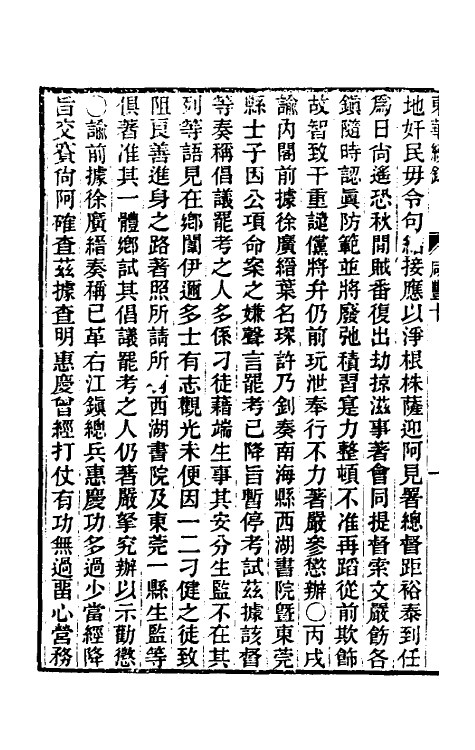 東華續錄 咸豐十 一
地奸民毋令句結接應以淨根株薩迎阿見署總督距裕泰到任
爲日尚遙恐秋閒賊番復出劫掠滋事著會同提督索文嚴飭各
鎮隨時認眞防範並將廢弛積習寔力整頓不准再蹈從前欺飾
故智致干重譴儻將弁仍前玩泄奉行不力著嚴參懲辦〇丙戌
諭內閣前據徐廣縉葉名琛許乃釗奏南海縣西湖書院曁東莞
縣士子因公項命案之嫌聲言罷考已降旨暫停考試茲據該督
等奏稱倡議罷考之人多係刁徒藉端生事其安分生監不在其
列等語見在鄉闈伊邇多士有志觀光未便因一二刁健之徒致
阻良善進身之路著照所請所有西湖書院及東莞一縣生監等
俱著准其一體鄉試其倡議罷考之人仍著嚴拏究辦以示勸懲
〇諭前據徐廣縉奏稱已革右江鎮總兵惠慶功多過少當經降
旨交賽尚阿確查茲據查明惠慶曾經打仗有功無過畱心營務